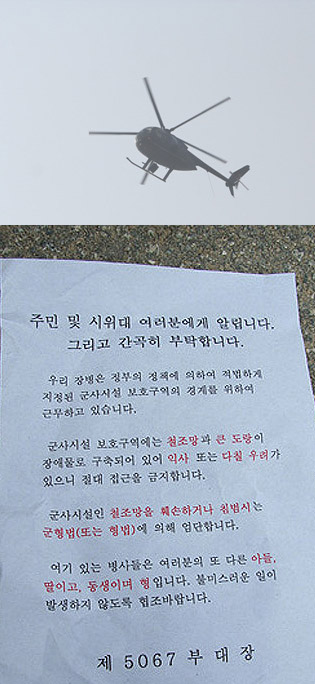 주민 및 시위대 여러분에게 알립니다.
그리고 간곡히 부탁합니다.
우리 장병은 정부의 정책에 의하여 적법하게
지정된 군사시설 보호구역의 경계를 위하여
근무하고 있습니다.
군사시설 보호구역에는 철조망과 큰 도랑이
장애물로 구축되어 있어 익사 또는 다칠 우려가
있으니 절대 접근을 금지합니다.
군사시설인 철조망을 훼손하거나 침범시는
군형법(또는 형법)에 의해 엄단합니다.
여기 있는 병사들은 여러분의 또 다른 아들,
딸이고, 동생이며 형입니다. 불미스러운 일이
발생하지 않도록 협조바랍니다.
제 5067 부 대 장